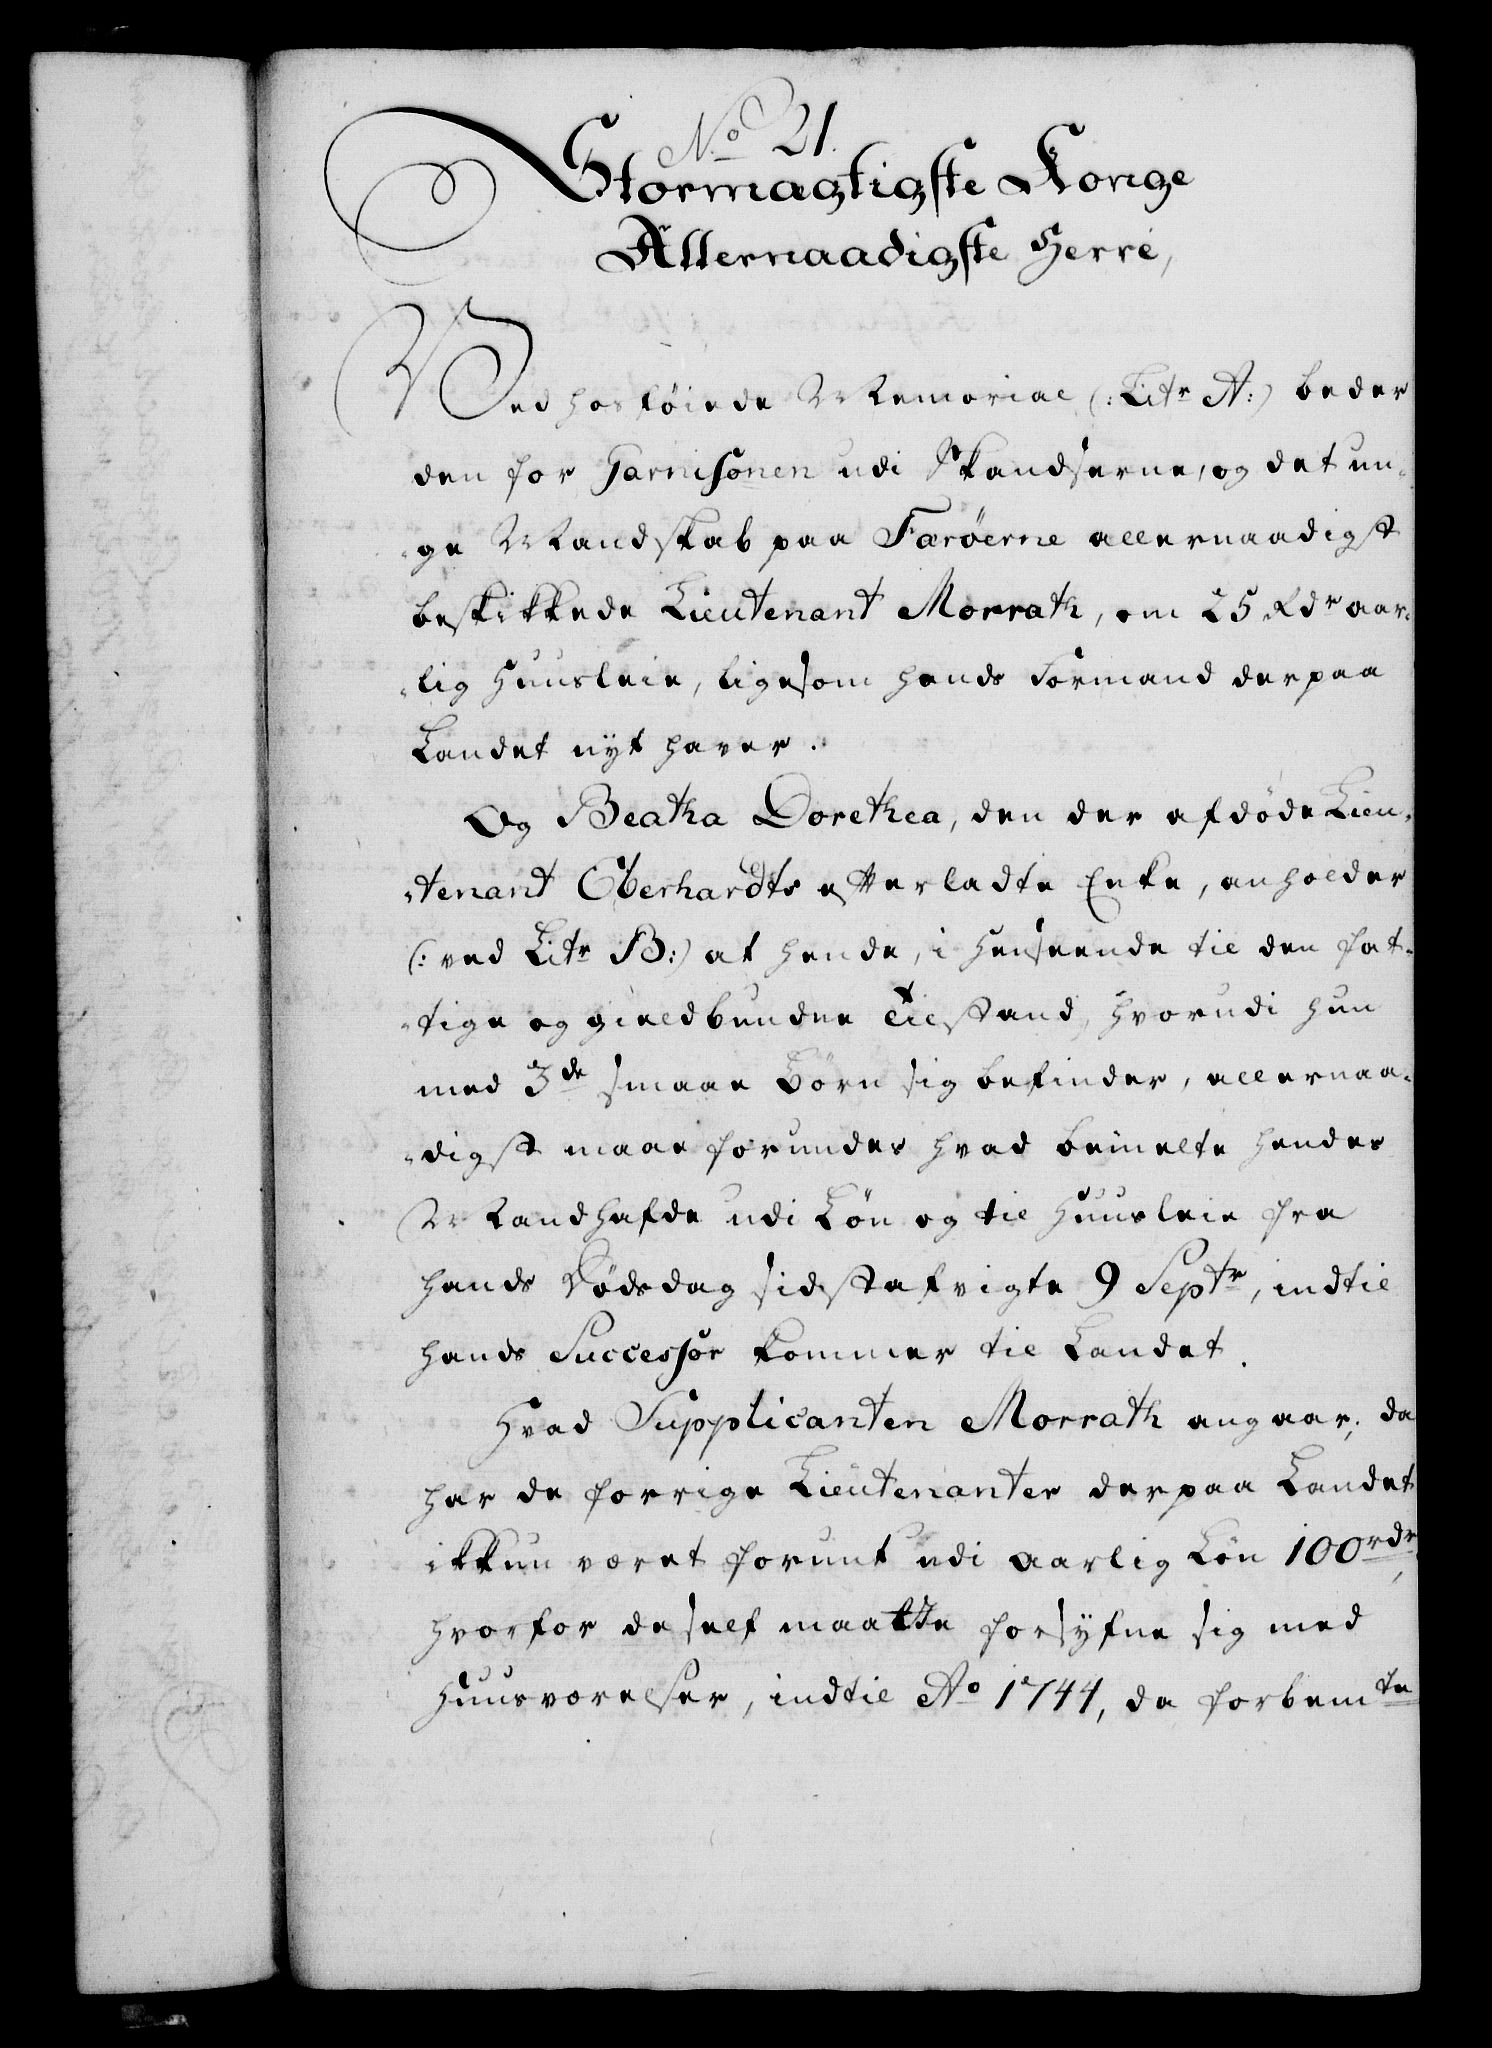 No 21.
Stormægtigste Konge
Allernaadigste Herre,
Ved hosføiede Memorial (: Litr A:) beder
den for Garnisonen udi Skandserne, og det un-
-ge Mandskab paa Færöerne allernaadigst
beskikkede Lieutenant Morrath, om 25 Rdr aar-
-lig Huusleie, ligesom hands Formand derpaa
Landet nyt haver.
Og Beatha Dorethea, den der afdøde Lieu-
-tenant Eberhardts efterladte Enke, anholder
(: ved Litr B:) at hende, i Henseende til den fat-
-tige og gieldbundne Tilstand, hvorudi hun
med 3de smaae Børn sig befinder, allernaa-
-digst maae forundes hvad bemelte hendes
Mand hafde udi Løn og til Huusleie fra
hands Dødsdag sidstafvigte 9 Septr, indtil
hands Successor kommer til Landet.
Hvad Supplicanten Morrath angaar, da
har de forrige Lieutenanter derpaa Landet
ikkun været forunt udi aarlig Løn 100 rdr,
hvorfor de self maatte forsÿfne sig med
Huusværelser, indtil Ao 1744, da forbemte